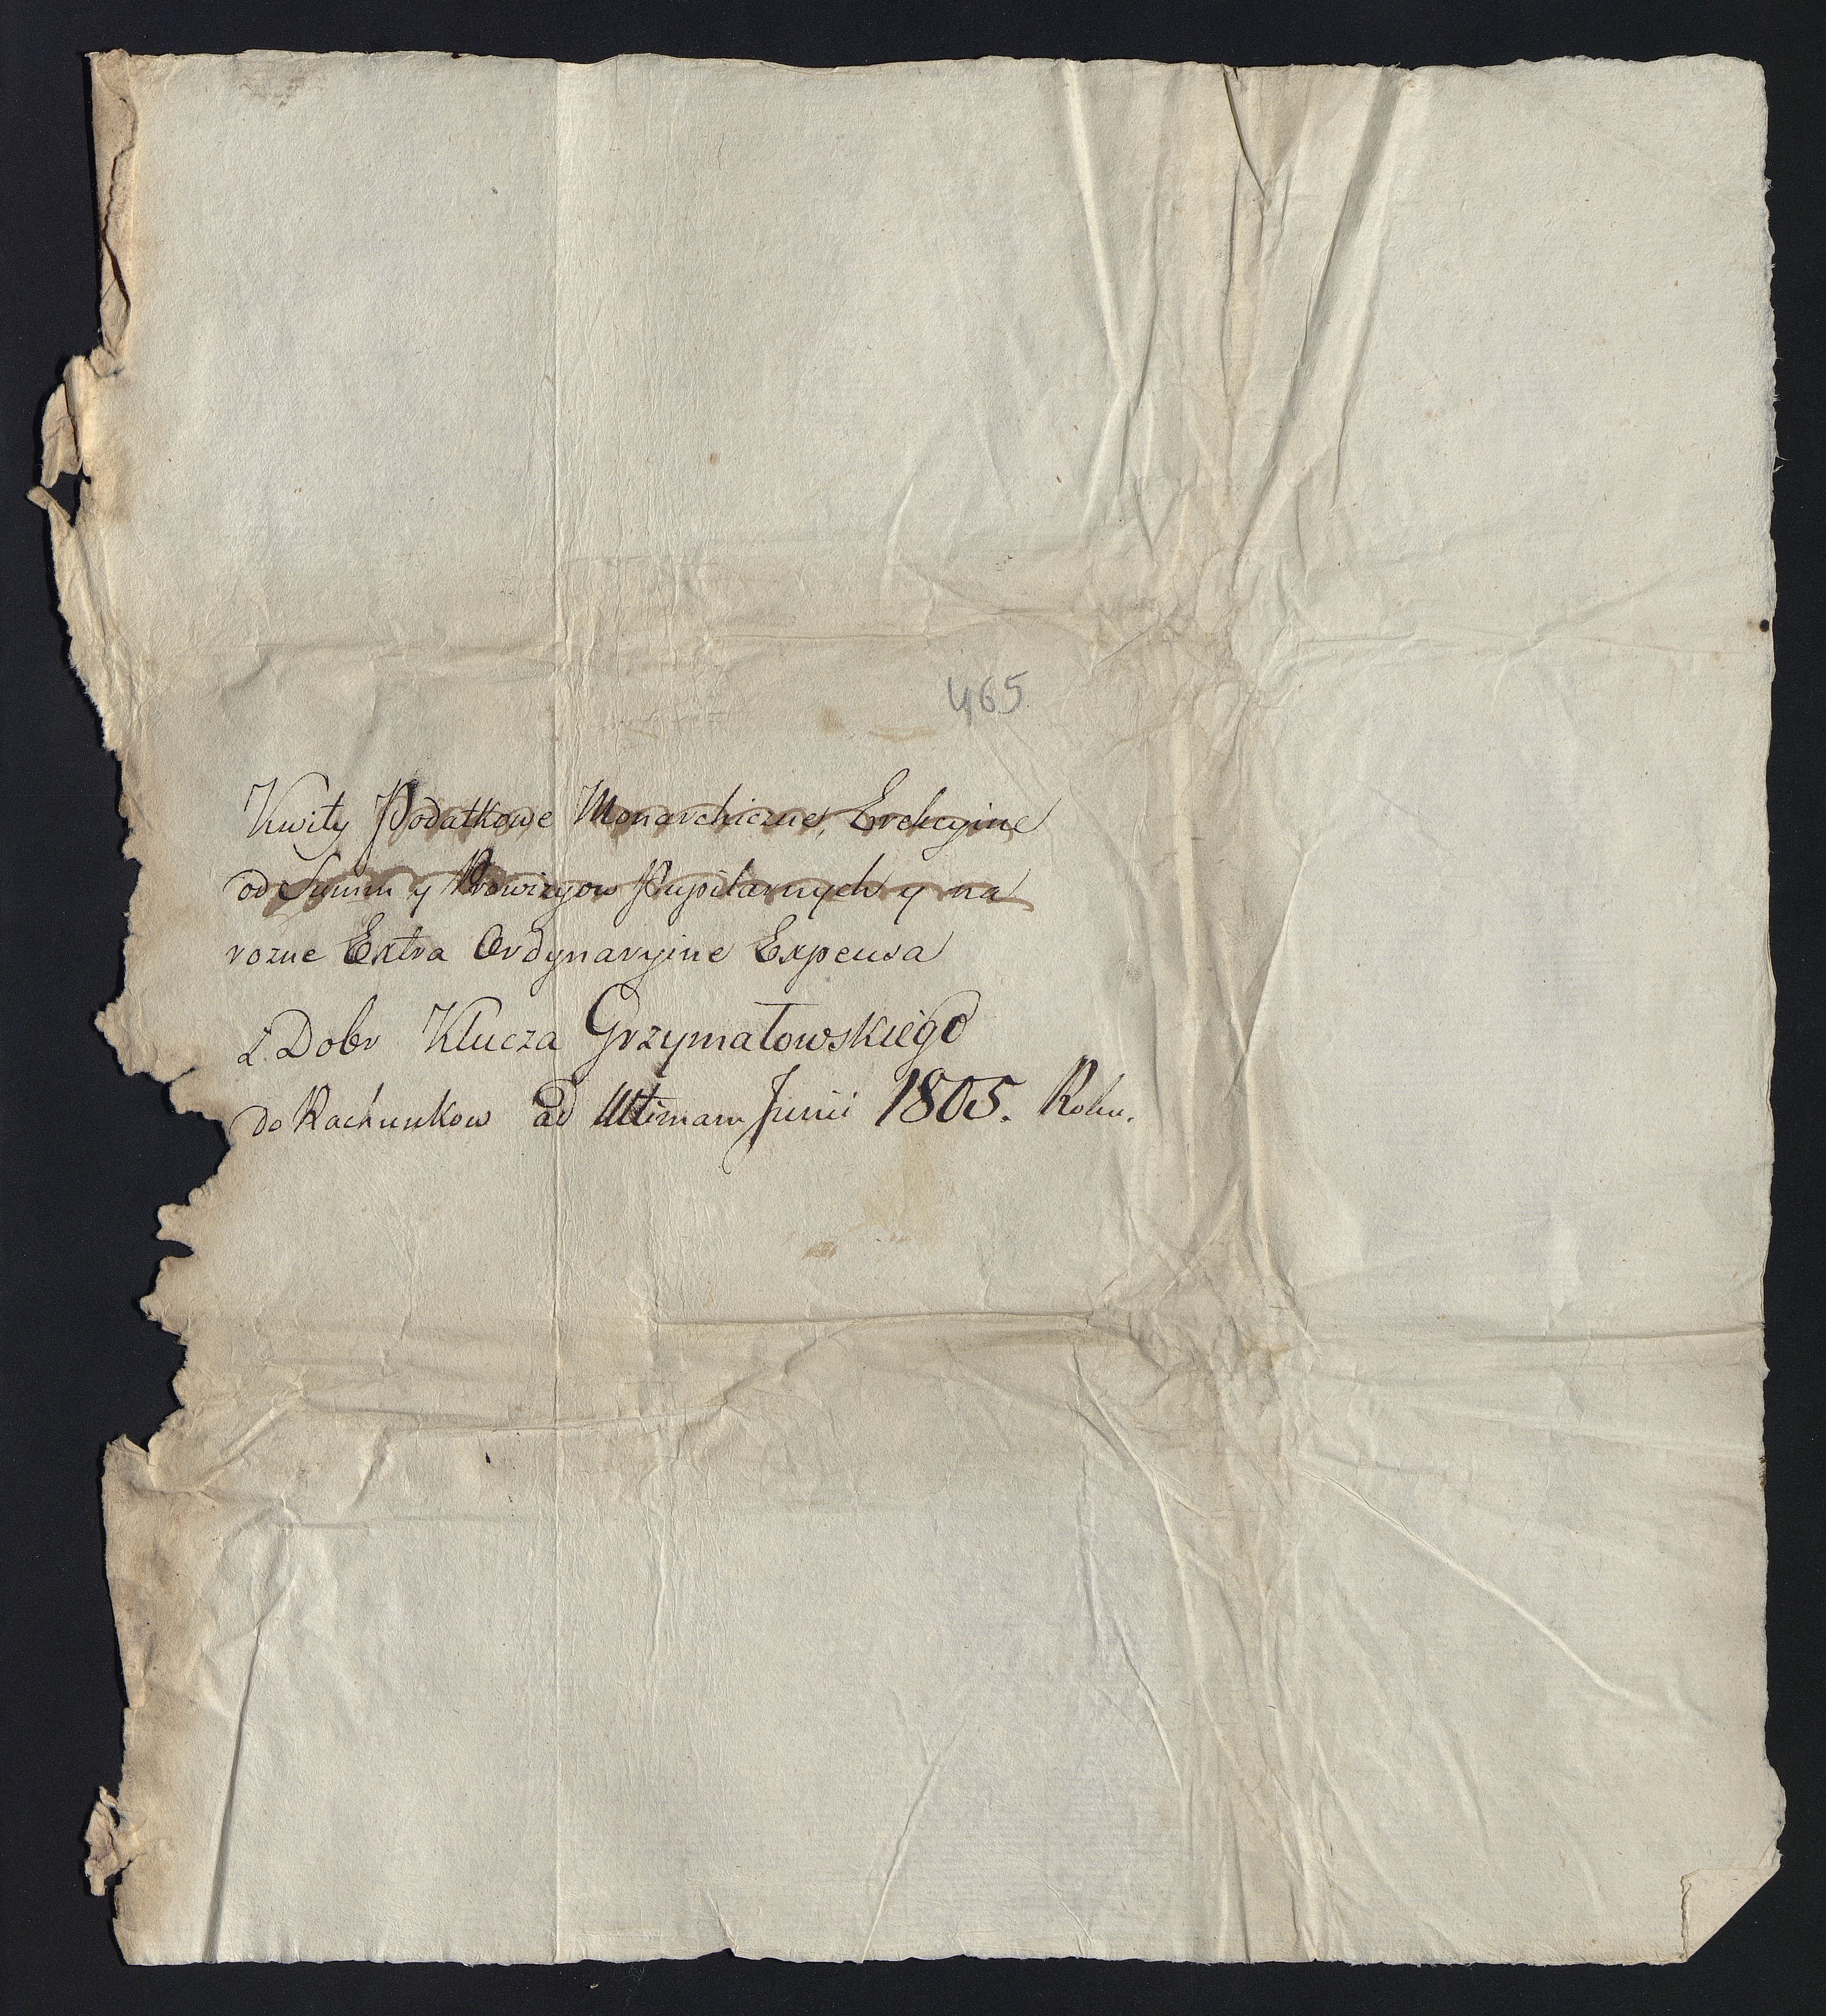 465
Kwity Podatkowe Monarchiczne, Erekcyine
od Summ y Prowizyow Pupilarnych y na
rozne Extra Ordynaryine Expensa
z Dobr Klucza Grzymałowskiego
do Rachunkow ad Ultimam Junii 1805. Roku.